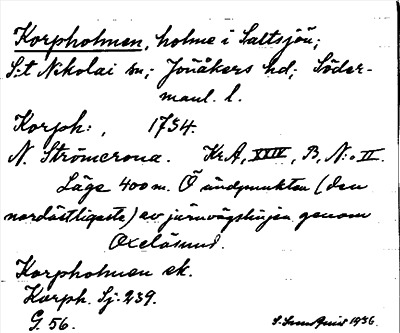 Korpholmen, holme i Saltsjön;
S:t Nikolai sn; Jönåkers hd; Söder-
manl. l.
Korph:, 1734.
N. Strömcrona. KrA, XXIV, B, N:o II.
Läge 400 m. Ö ändpunkten (den
nordöstligaste) av järnvägslinjen genom
Oxelösund.
Korpholmen ek.
Korph. Sj. 239.
G. 56.
1936.